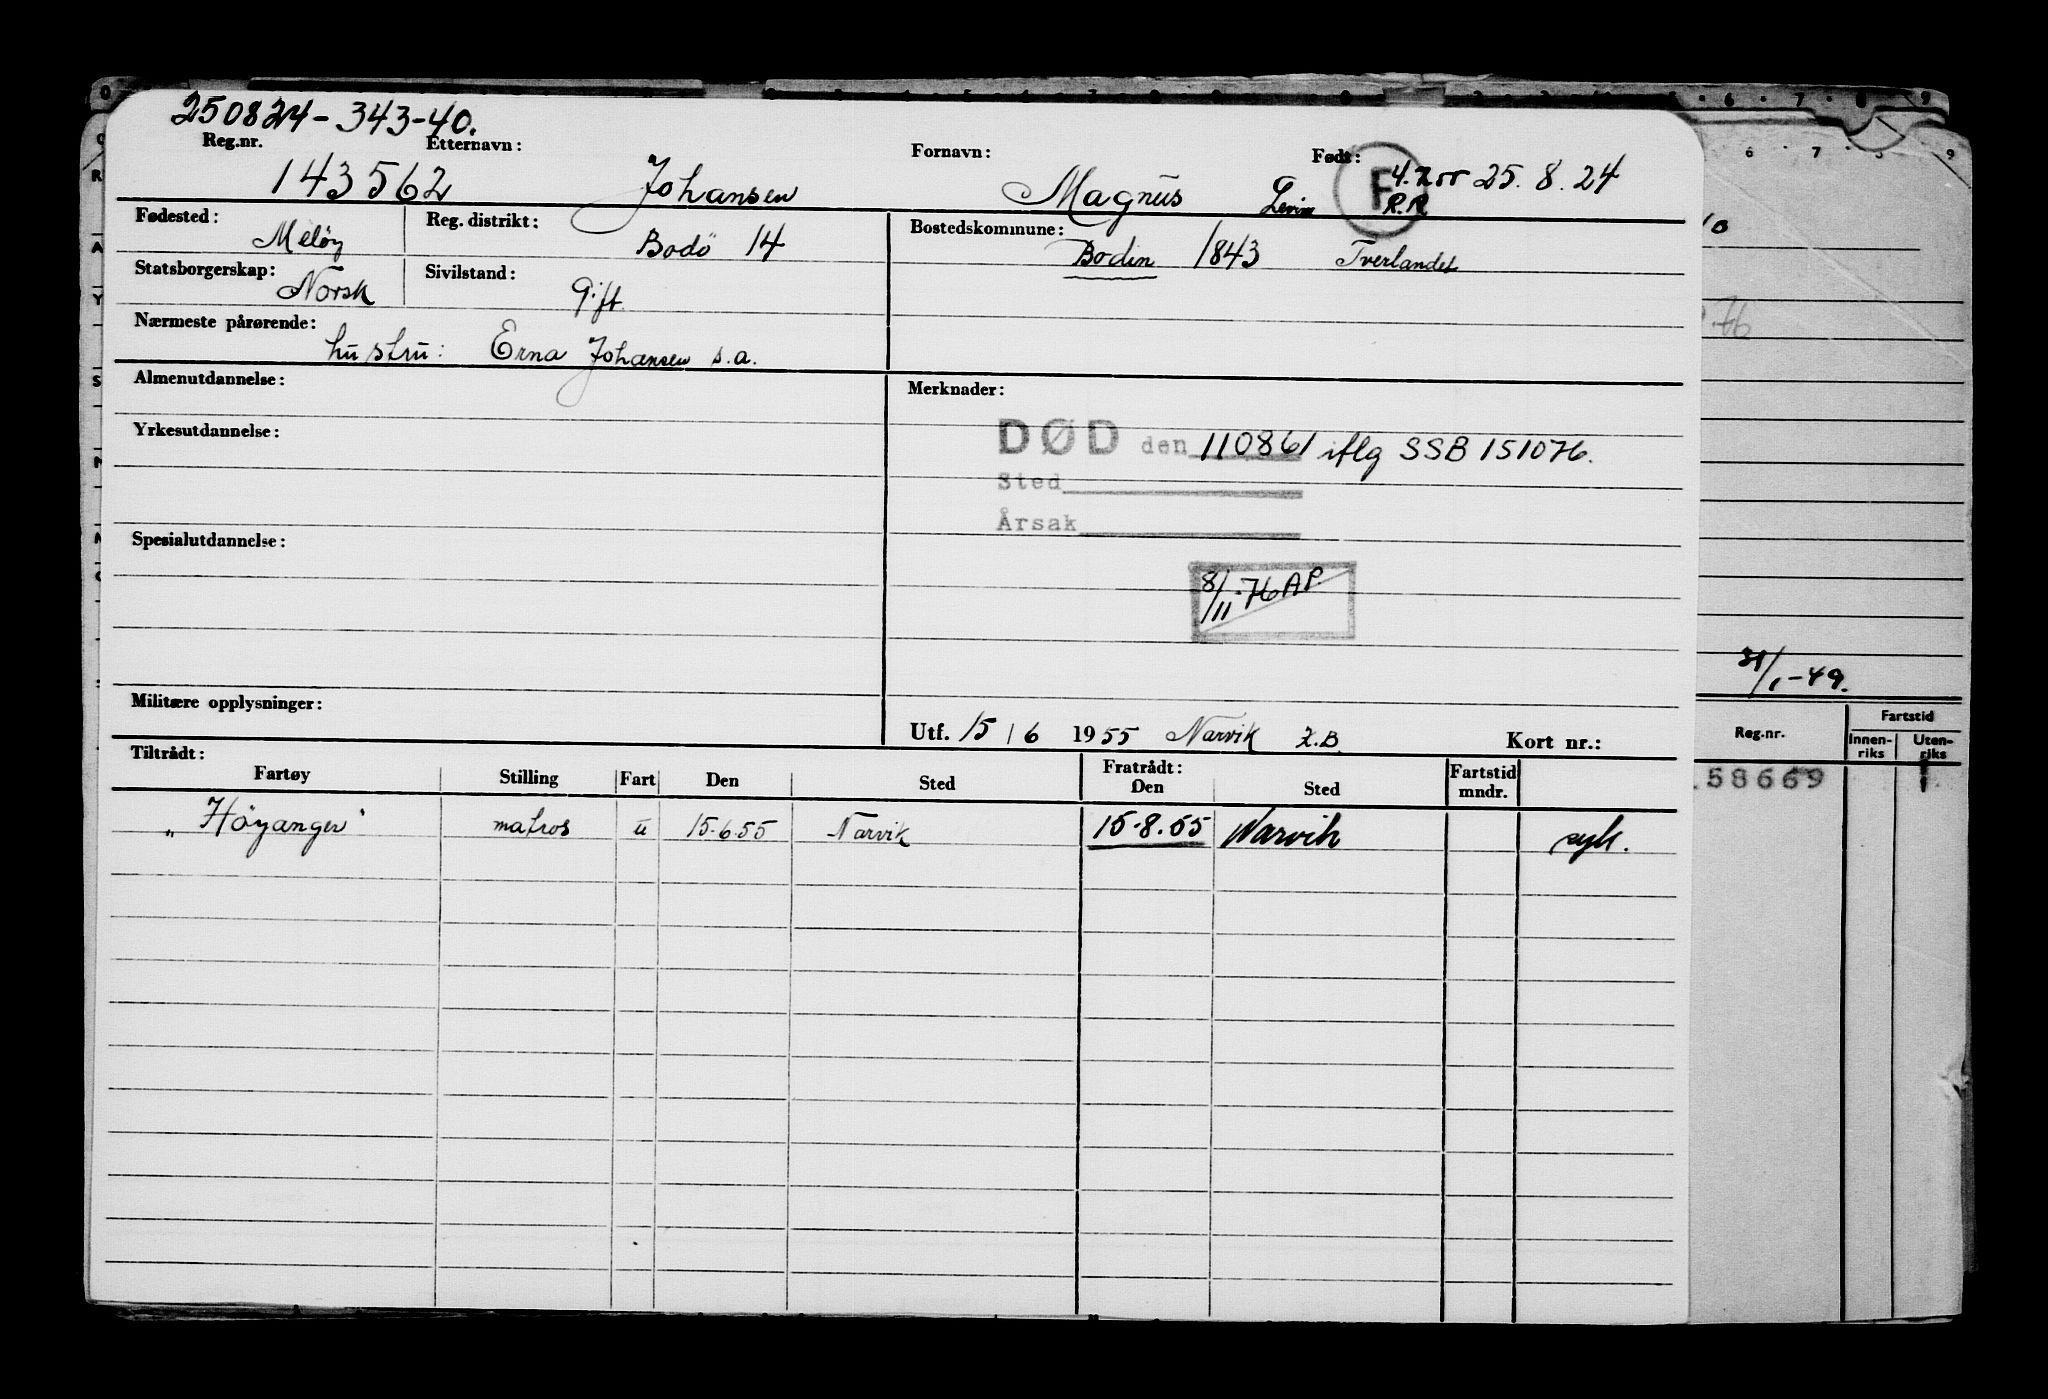 250824-343-40.
Reg.nr. Etternavn: Fornavn: Født:
143562 Johansen Magnus F 25.8.24
R.R
Fødested: Reg. distrikt: Bostedskommune:
Meløy Bodö 14 Bodin 1843 Tverlandet
Statsborgerskap: Sivilstand:
Norsk Gift.
Nærmeste pårørende:
hustru: Erna Johansen s.a.
Almenutdannelse: Merknader:
Yrkesutdannelse:
DØD den 110861 iflg SSB 151076.
Sted
Årsak
Spesialutdannelse:
8/11-76 AP.
31/1-49.
Militære opplysninger:
Utf. 15/6 1955 Narvik Z.B. Kort nr.:
Tiltrådt: Fratrådt:
Fartøy Stilling Fart Den Sted Den Sted Fartstid mndr.
"Höyanger" matros u 15.6.55 Narvik 15.8.55 Narvik syk.
Reg.nr. Fartstid
Innen-riks Uten-riks
58669